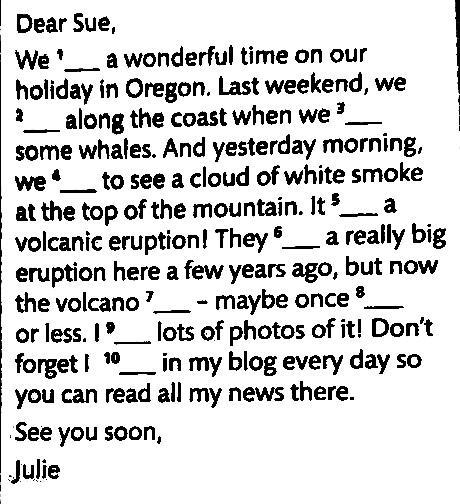 Dear Sue,
We ¹___ a wonderful time on our
holiday in Oregon. Last weekend, we
²___ along the coast when we ³___
some whales. And yesterday morning,
we ⁴___ to see a cloud of white smoke
at the top of the mountain. It ⁵___ a
volcanic eruption! They ⁶___ a really big
eruption here a few years ago, but now
the volcano ⁷___ – maybe once ⁸___
or less. I ⁹___ lots of photos of it! Don't
forget I ¹⁰___ in my blog every day so
you can read all my news there.
See you soon,
Julie